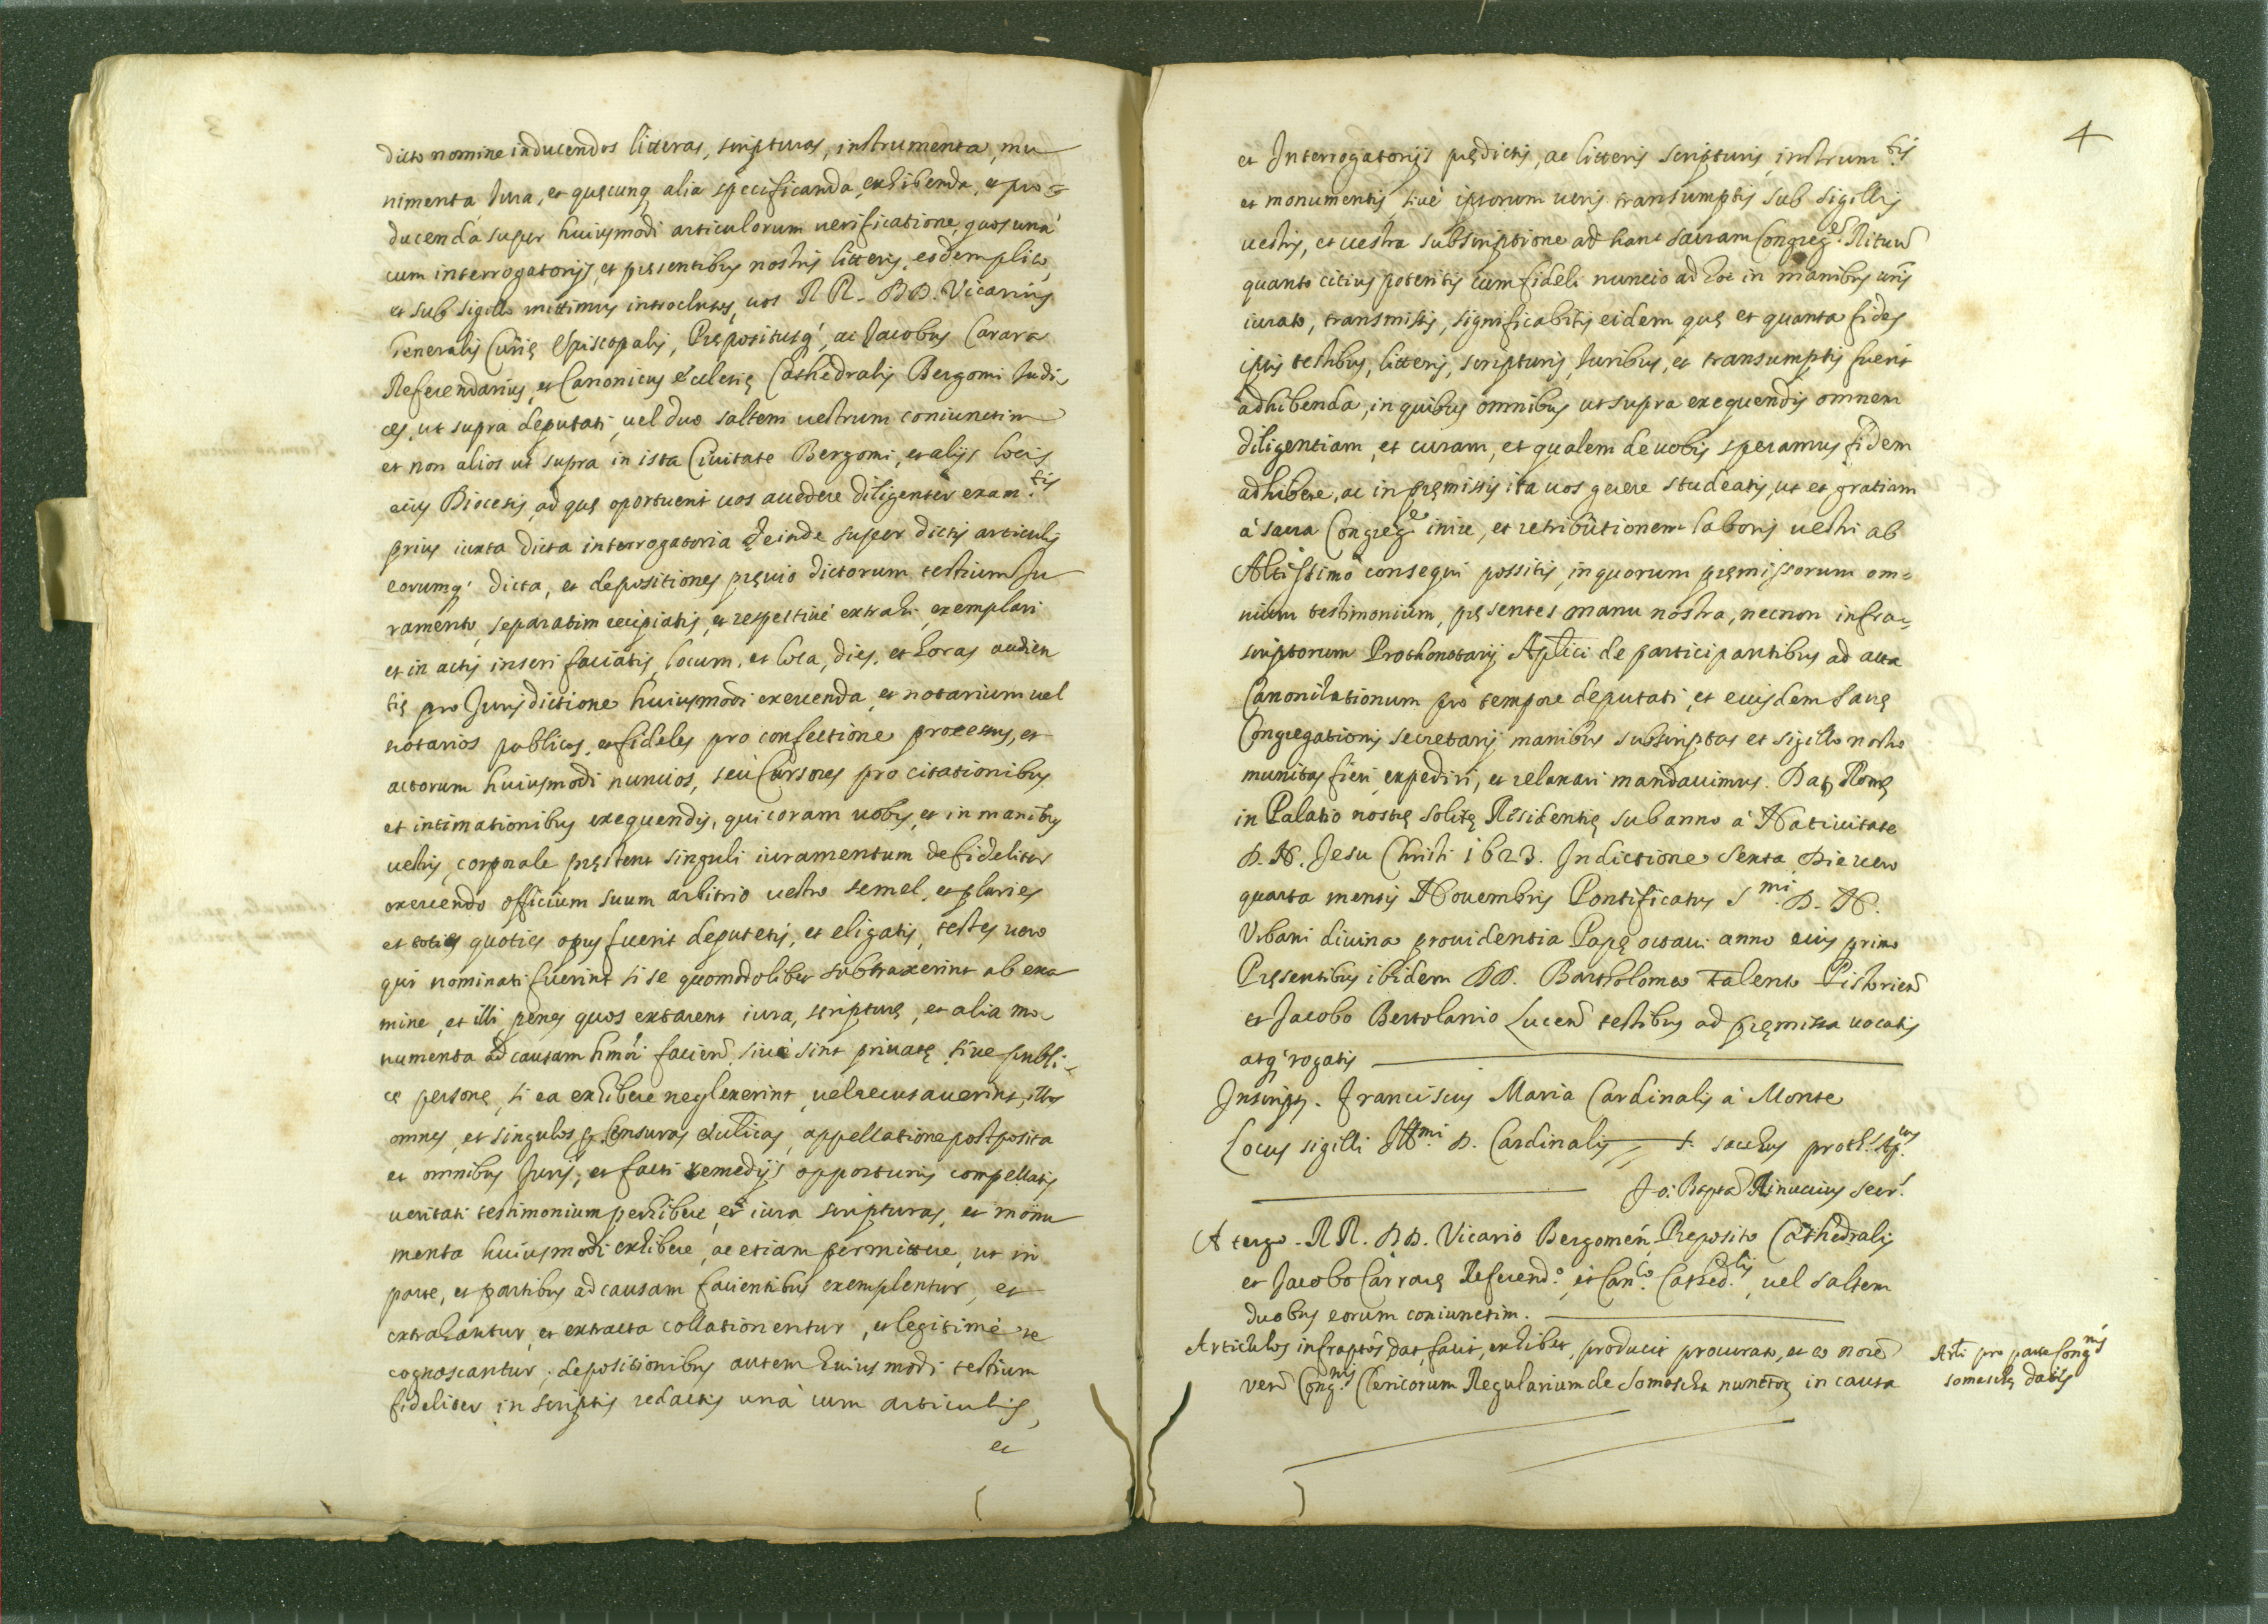 dicto nomine inducendos litteras, scripturas, instrumenta, mu
nimenta Iura, et quęcunq alia specificanda, exhibenda, et pro=
ducenda super huiusmodi articulorum uerificatione, quos unà
cum interrogatorijs, et pręsentibus nostris litteris, eisdem plico,
et sub sigillo mittimus introclusos, uos RR. DD. Vicarius
Generalis Curię Episcopalis, Prępositusq́, ac Jacobus Carara
Referendarius, et Canonicus Ecclesię Cathedralis Bergomi Iudi
ces, ut supra deputati, uel duo saltem uestrum coniunctim
et non alios ut supra in ista Ciuitate Bergomi, et alijs locis
eius Diocesis, ad quę oportuerit uos accedere diligenter exam.tis
prius iuxta dicta interrogatoria deinde super dictis articulis
eorumq́ dicta, et depositiones pręuio dictorum testium Iu
ramento, separatim recipiatis, et respectiuè extrahi, exemplari
et in actis inseri faciatis, locum, et loca, dies, et horas audien
tię pro Jurisdictione huiusmodi exercenda, et notarium uel
notarios publicos, et fideles pro confectione processus, et
actorum huiusmodi nuncios, seù Cursores pro citationibus
et intimationibus exequendis, qui coram uobis, et in manibus
uestris, corporale pręstent singuli iuramentum de fideliter
exercendo officium suum arbitrio uestro semel, et pluries
et toties quoties opus fuerit deputetis, et eligatis, testes uero
qui nominati fuerint si se quomodolibet subtraxerint ab exa
mine, et illi penes quos extarent iura, scripturę, et alia mo
numenta ad causam hmõi facien̄, siuè sint priuatę, siue publi=
cę personę, si ea exhibere neglexerint, uel recusauerint, illos
omnes, et singulos p̱ Censuras Ecclicas, appellatione postposita
et omnibus Juris, et facti remedijs opportunis compellatis
ueritati testimonium perhibere, et iura scripturas, et monu
menta huiusmodi exhibere, ac etiam permittere, ut in
parte, et partibus ad causam facientibus exemplentur, et
extrahantur, et extracta collationentur, et legitimè re
cognoscantur; depositionibus autem huiusmodi testium
fideliter in scriptis redactis unà cum articulis,
et
4
et Interrogatorijs prędictis, ac litteris scripturis, instrum.tis
et monumentis, siuè ipsorum ueris transumptis sub sigillis
uestris, et uestra subscriptione ad hanc sacram Congreg.e Rituum
quanto citius poteritis cum fideli nuncio ad hoc in manibus uris
iurato, transmissis, significabitis eidem quę et quanta fides
ipsis testibus, litteris, scripturis, Iuribus, et transumptis fuerit
adhibenda, in quibus omnibus ut supra exequendis omnem
diligentiam, et curam, et qualem de uobis speramus fidem
adhibere, ac in pręmissis ita uos gerere studeatis, ut et gratiam
à sacra Congreg.e inire, et retributionem laboris uestri ab
Altissimo consequi possitis, in quorum pręmissorum om=
nium testimonium, pręsentes manu nostra, necnon infra=
scriptorum Prothonotarij Aplici de participantibus ad acta
Canonizationum pro tempore deputati, et eiusdem Sacrę
Congregationis secretarij manibus subscriptas et sigillo nostro
munitas fieri, expediri, et relaxari mandauimus. Dat Romę
in Palatio nostrę solitę Residentię sub anno à Natiuitate
D. N. Jesu Christi 1623. Indictione Sexta Die uero
quarta mensis Nouembris Pontificatus S.mi D. N.
Vrbani diuina prouidentia Papę octaui anno eius primo
Pręsentibus ibidem DD. Bartholomeo Talento Pistorien̄
et Jacobo Bertolanio Lucen̄ testibus ad pręmissa uocatis
atq́ rogatis
Inscript. Franciscus Maria Cardinalis à Monte
Locus sigilli Ill.mi D. Cardinalis F. sacchus proth. Ap.cus
Jo: Bapta Rinuccius Secr.
A tergo. RR. DD. Vicario Bergomen̄, Preposito Cathedralis
et Jacobo Carrarę Referend.o, et Can.co Cathed.lis, uel saltem
duobus eorum coniunctim.
Articulos infraptos dat, facit, exhibet, producit procurator, et eo noīe
ven̄ Cong.nis Clericorum Regularium de Somascha nuncor in causa
Arti pro parte Cong.nis
somaschę datis